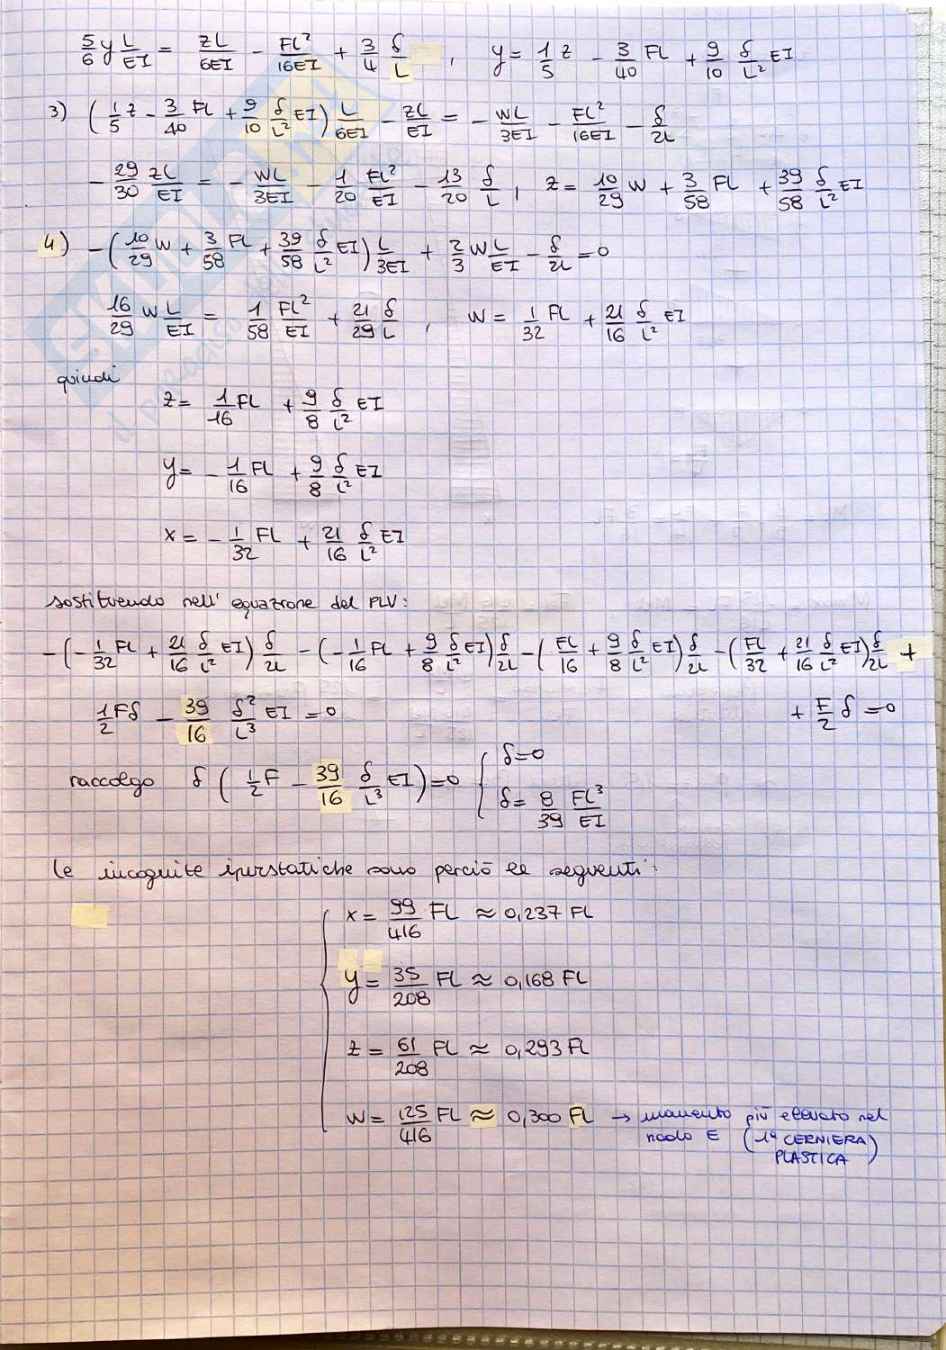 5/6 y L/EI = ZL/6EI - FL²/16EI + 3/4 δ/L , y = 1/5 z - 3/40 FL + 9/10 δ/L² EI
3) (1/5 z - 3/40 FL + 9/10 δ/L² EI) L/6EI - ZL/EI = - WL/3EI - FL²/16EI - δ/2L
- 29/30 ZL/EI = - WL/3EI - 1/20 FL²/EI - 13/20 δ/L , z = 10/29 W + 3/58 FL + 39/58 δ/L² EI
4) - (10/29 W + 3/58 FL + 39/58 δ/L² EI) L/3EI + 2/3 W L/EI - δ/2L = 0
16/29 W L/EI = 1/58 FL²/EI + 21/29 δ/L , W = 1/32 FL + 21/16 δ/L² EI
quindi
z = 1/16 FL + 9/8 δ/L² EI
y = - 1/16 FL + 9/8 δ/L² EI
x = - 1/32 FL + 21/16 δ/L² EI
sostituendo nell' equazione del PLV:
- (- 1/32 FL + 21/16 δ/L² EI) δ/2L - (- 1/16 FL + 9/8 δ/L² EI) δ/2L - (FL/16 + 9/8 δ/L² EI) δ/2L - (FL/32 + 21/16 δ/L² EI) δ/2L +
+ F/2 δ = 0
1/2 Fδ - 39/16 δ²/L³ EI = 0
raccolgo δ (1/2 F - 39/16 δ/L³ EI) = 0 { δ = 0
δ = 8/39 FL³/EI
le incognite iperstatiche sono perciò le seguenti:
x = 99/416 FL ≈ 0,237 FL
y = 35/208 FL ≈ 0,168 FL
z = 61/208 FL ≈ 0,293 FL
W = 125/416 FL ≈ 0,300 FL → momento più elevato nel
nodo E (1ª CERNIERA
PLASTICA)